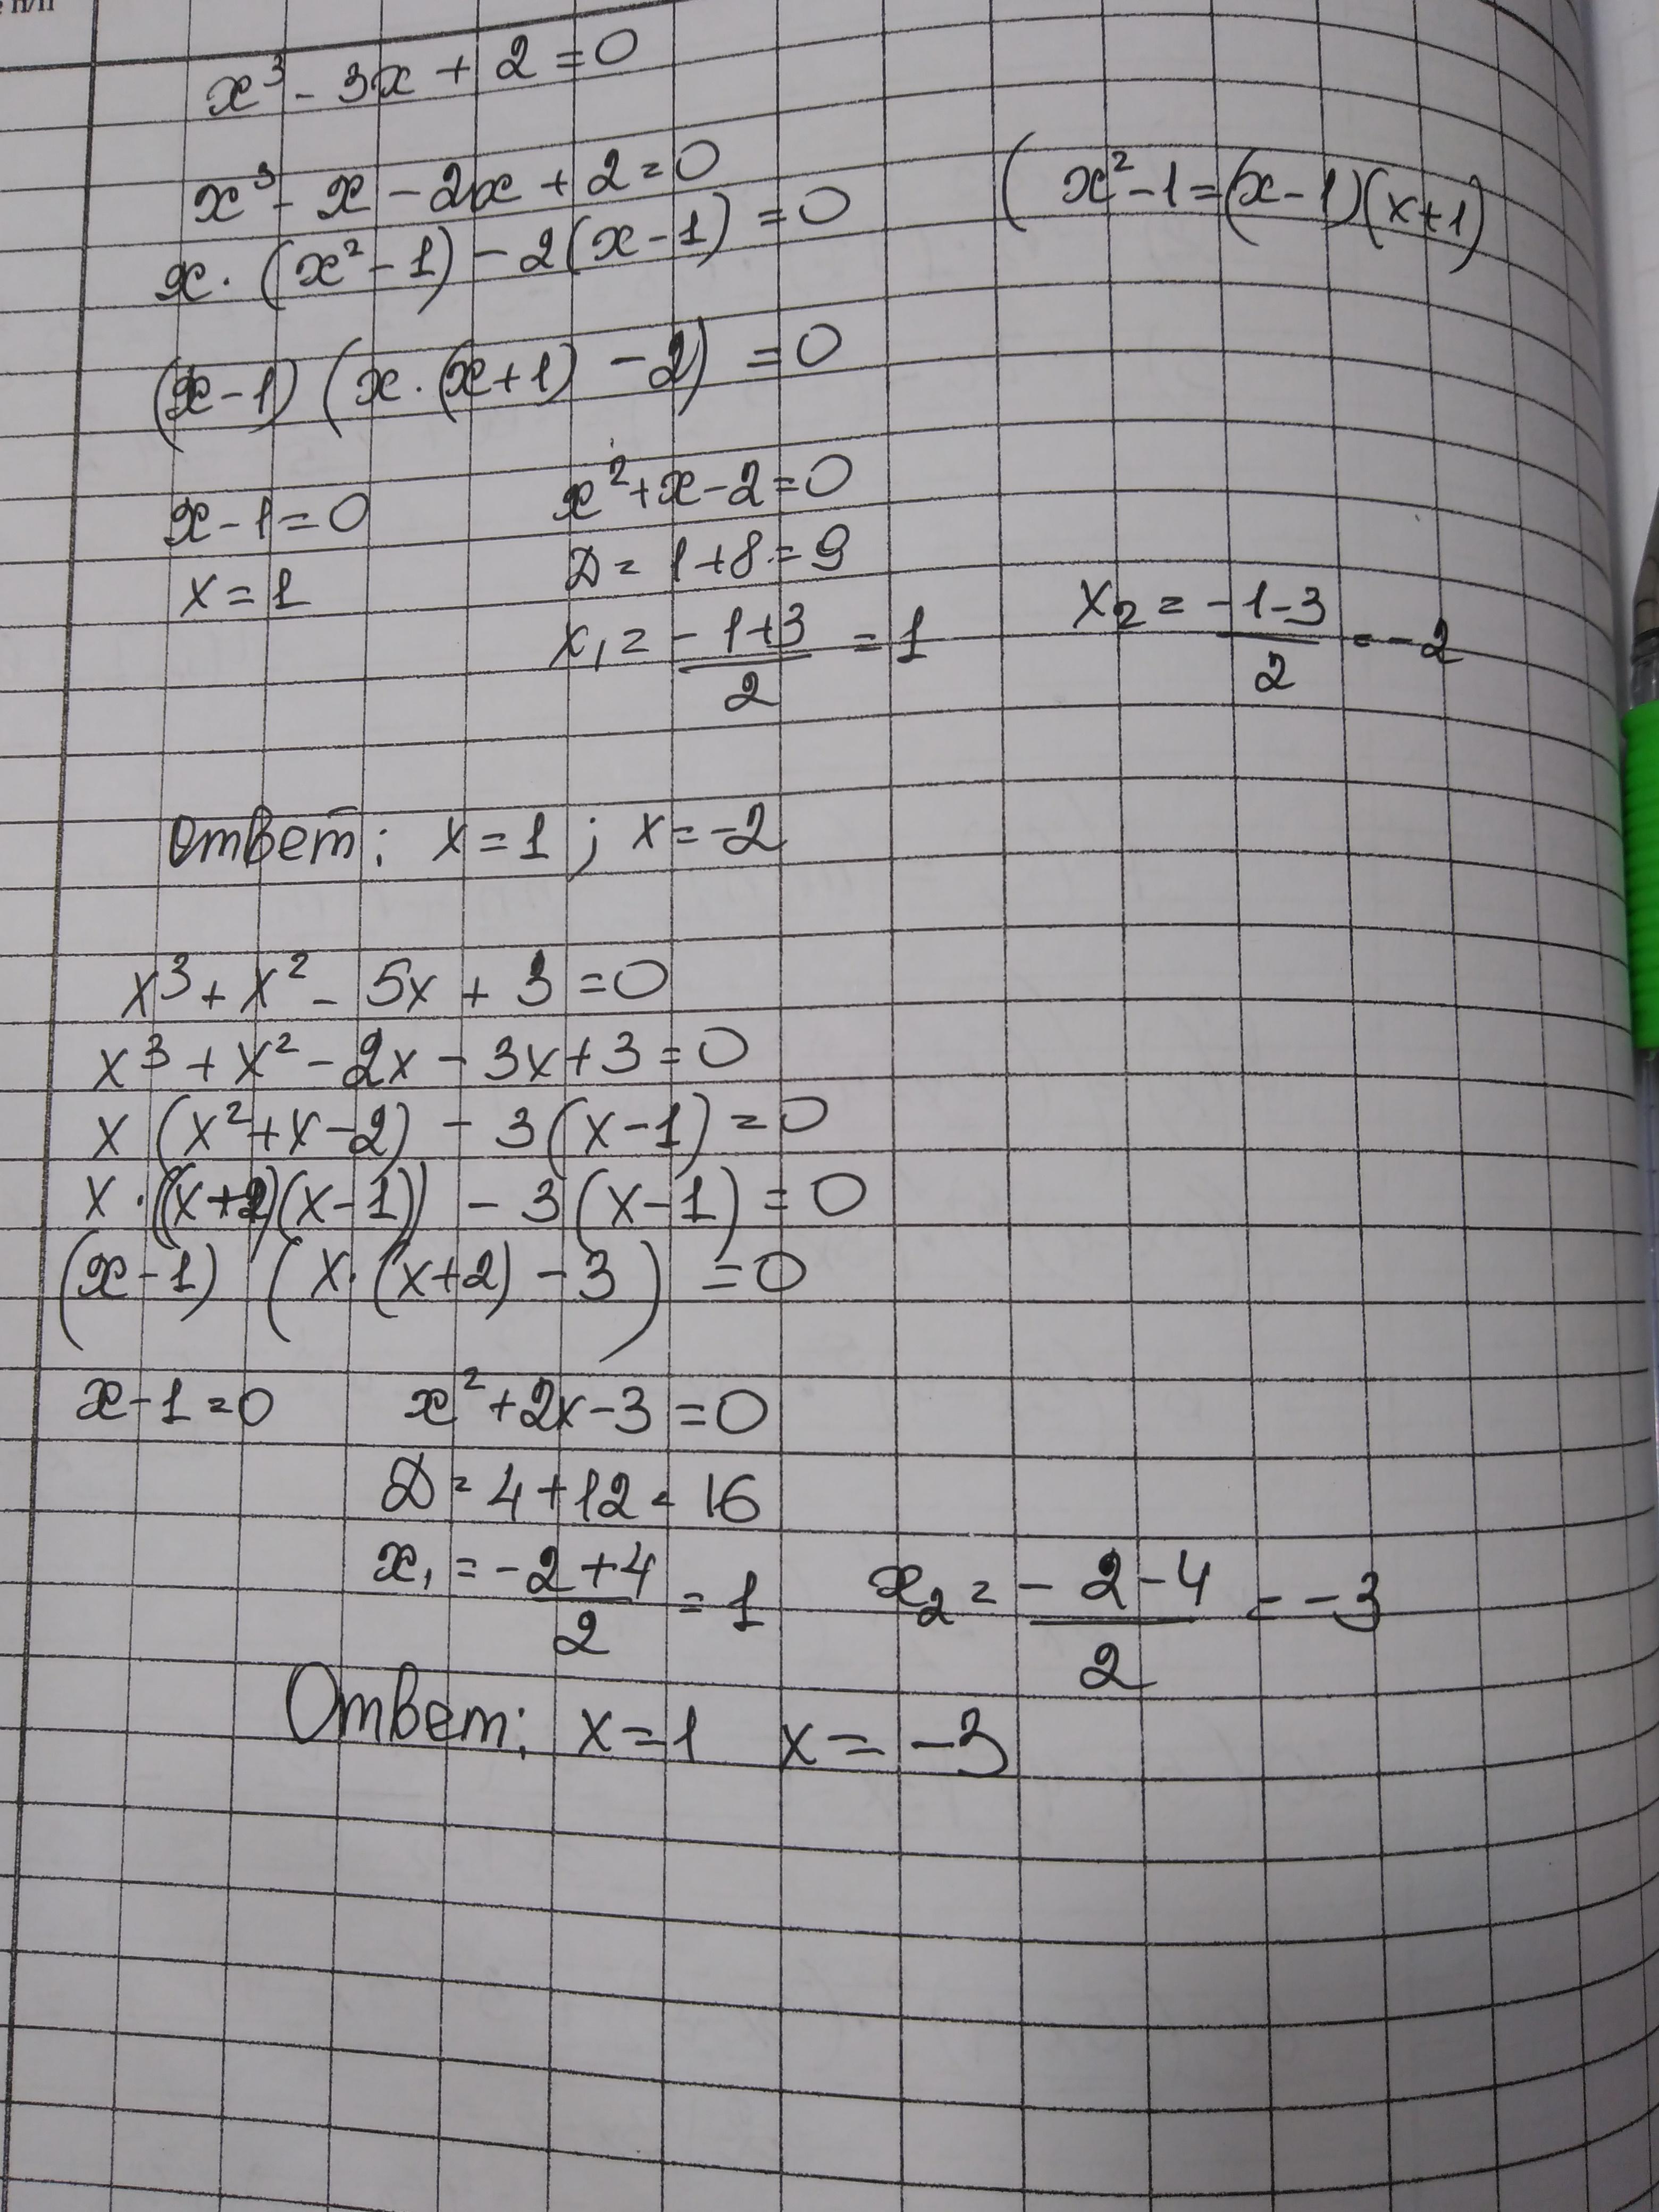 п/п
x³ - 3x + 2 = 0
x³ - x - 2x + 2 = 0
x · (x² - 1) - 2(x - 1) = 0 (x² - 1 = (x - 1)(x + 1)
(x - 1) (x · (x + 1) - 2) = 0
x - 1 = 0 x² + x - 2 = 0
x = 1 D = 1 + 8 = 9
x₁ = \frac{-1+3}{2} = 1 x₂ = \frac{-1-3}{2} = -2
Ответ: x = 1 ; x = -2
x³ + x² - 5x + 3 = 0
x³ + x² - 2x - 3x + 3 = 0
x (x² + x - 2) - 3(x - 1) = 0
x · ((x + 2)(x - 1)) - 3(x - 1) = 0
(x - 1) (x · (x + 2) - 3) = 0
x - 1 = 0 x² + 2x - 3 = 0
D = 4 + 12 = 16
x₁ = \frac{-2+4}{2} = 1 x₂ = \frac{-2-4}{2} = -3
Ответ: x = 1 x = -3